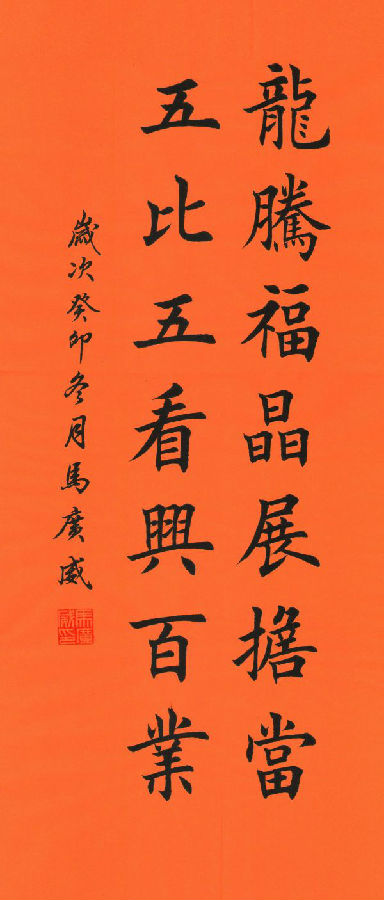 龍騰福晶展擔當
五比五看興百業
歲次癸卯冬月馬廣威